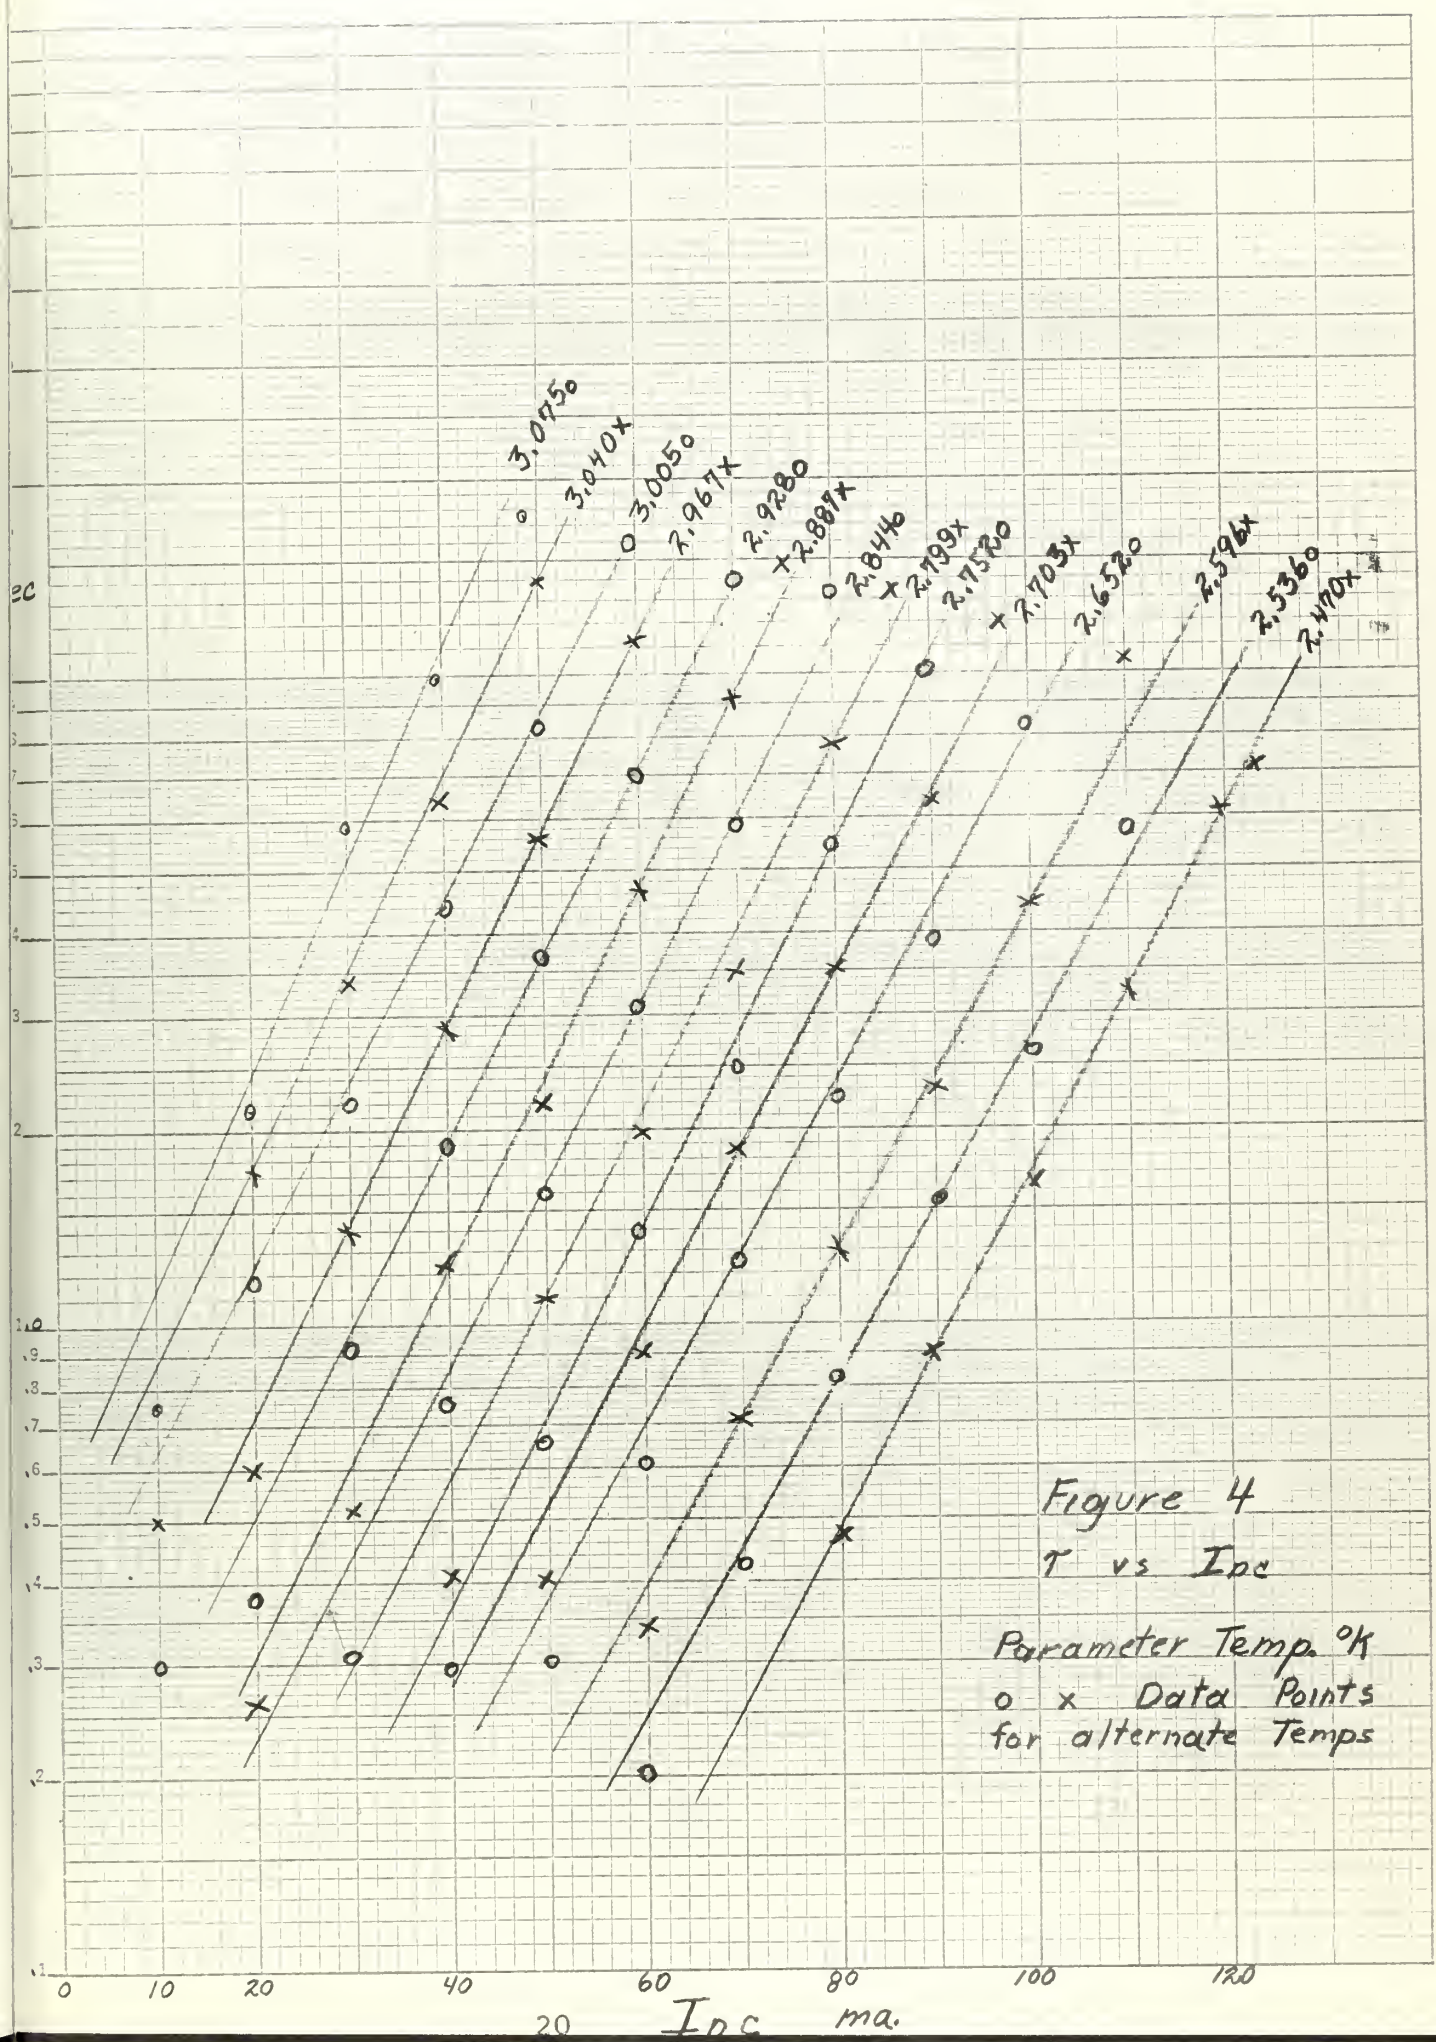 3.075o
3.040x
3.005o
2.967x
2.928o
2.887x
2.844o
2.799x
2.752o
2.703x
2.652o
2.596x
2.536o
2.470x
ec
5
4
3
2
1.0
.9
.8
.7
.6
.5
.4
.3
.2
.1
Figure 4
τ vs IDC
Parameter Temp. °K
o x Data Points
for alternate Temps
0 10 20 40 60 80 100 120
IDC ma.
20